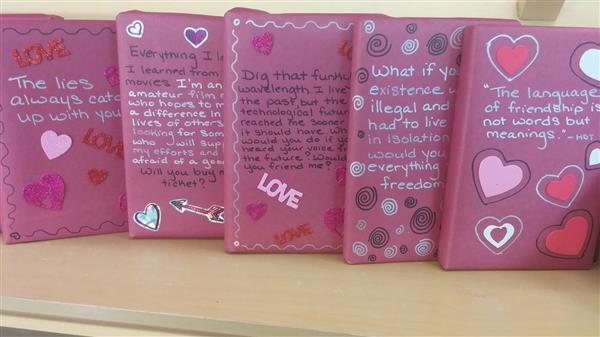 LOVE
The lies
always catch
up with you
LOVE
Everything I
I learned from
movies. I'm an
amateur film
who hopes to m
a difference in
lives of others.
looking for som
who will sup
my efforts and
afraid of a good
Will you buy m
ticket?
LOVE
Dig that funky
wavelength. I live
the past, but the
technological future
reached me sooner
it should have. Wh
would you do if yo
heard your voice f
the future? Would
you friend me?
LOVE
LOVE
What if yo
existence w
illegal and
had to live
in isolation
would you
everything
freedom
"The language
of friendship is
not words but
meanings." - HDT